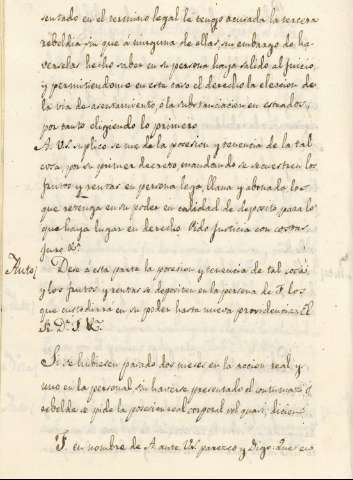 sentado en el termino legal le tengo acusada la tercera
rebeldia sin que á ninguna de ellas, sin embargo de ha-
verselas hecho saber en su persona haya salido al juicio,
y permitiendome en este caso el derecho la eleccion de
la via de asentamiento, ó la substanciacion en estrados,
por tanto eligiendo lo primero
A V. suplico se me de la posesion y tenencia de la tal
cosa por su primer decreto, mandando se secuestren los
frutos y rentas en persona lega, llana y abonada los
que retenga en su poder en calidad de deposito, para lo
que haya lugar en derecho. Pido Justicia con costas
Juro &a.
Auto
Dese á esta parte la posesion y tenencia de tal cosa,
y los frutos y rentas se depositen en la persona de F. los
que custodiará en su poder hasta nueva providencia. El
S. Dn. F. &a.
Si se hubiesen pasado dos meses en la accion real, y
uno en la personal, sin haverse presentado el contumaz ó
rebelde se pide la posesion real, corporal vel quasi, diciendo
F. en nombre de A ante V. parezco y Digo: Que en